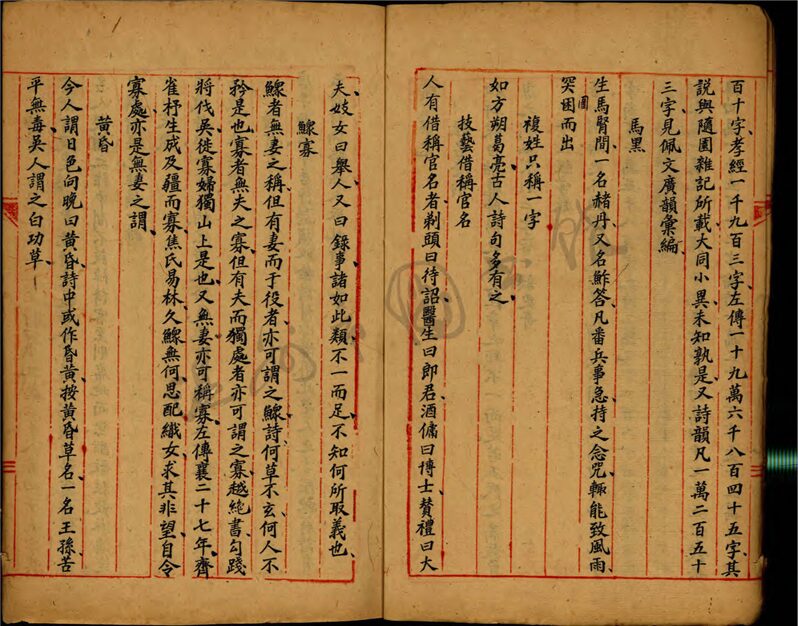 百十字孝經一千九百三字左傳一十九萬六千八百四十五字其
說與隨園雜記所載大同小異未知孰是又詩韻凡一萬二百五十
三字見佩文廣韻彙編
馬黑
生馬腎間一名赭丹又名鮓答凡番兵事急持之念咒輒能致風雨
突困而出
圍
複姓只稱一字
如方朔葛亮古人詩句多有之
技藝借稱官名
人有借稱官名者剃頭曰待詔醫生曰郎君酒傭曰博士贊禮曰大
夫妓女曰舉人又曰錄事諸如此類不一而足不知何所取義也
鰥寡
鰥者無妻之稱但有妻而于役者亦可謂之鰥詩何草不玄何人不
矜是也寡者無夫之寡但有夫而獨處者亦可謂之寡越絶書勾踐
將伐吳徙寡婦獨山上是也又無妻亦可稱寡左傳襄二十七年齊
崔杼生成及疆而寡焦氏易林久鰥無何思配織女求其非望自令
寡處亦是無妻之謂
黃昏
今人謂日色向晚曰黃昏詩中或作昏黃按黃昏草名一名王孫苦
平無毒吳人謂之白功草